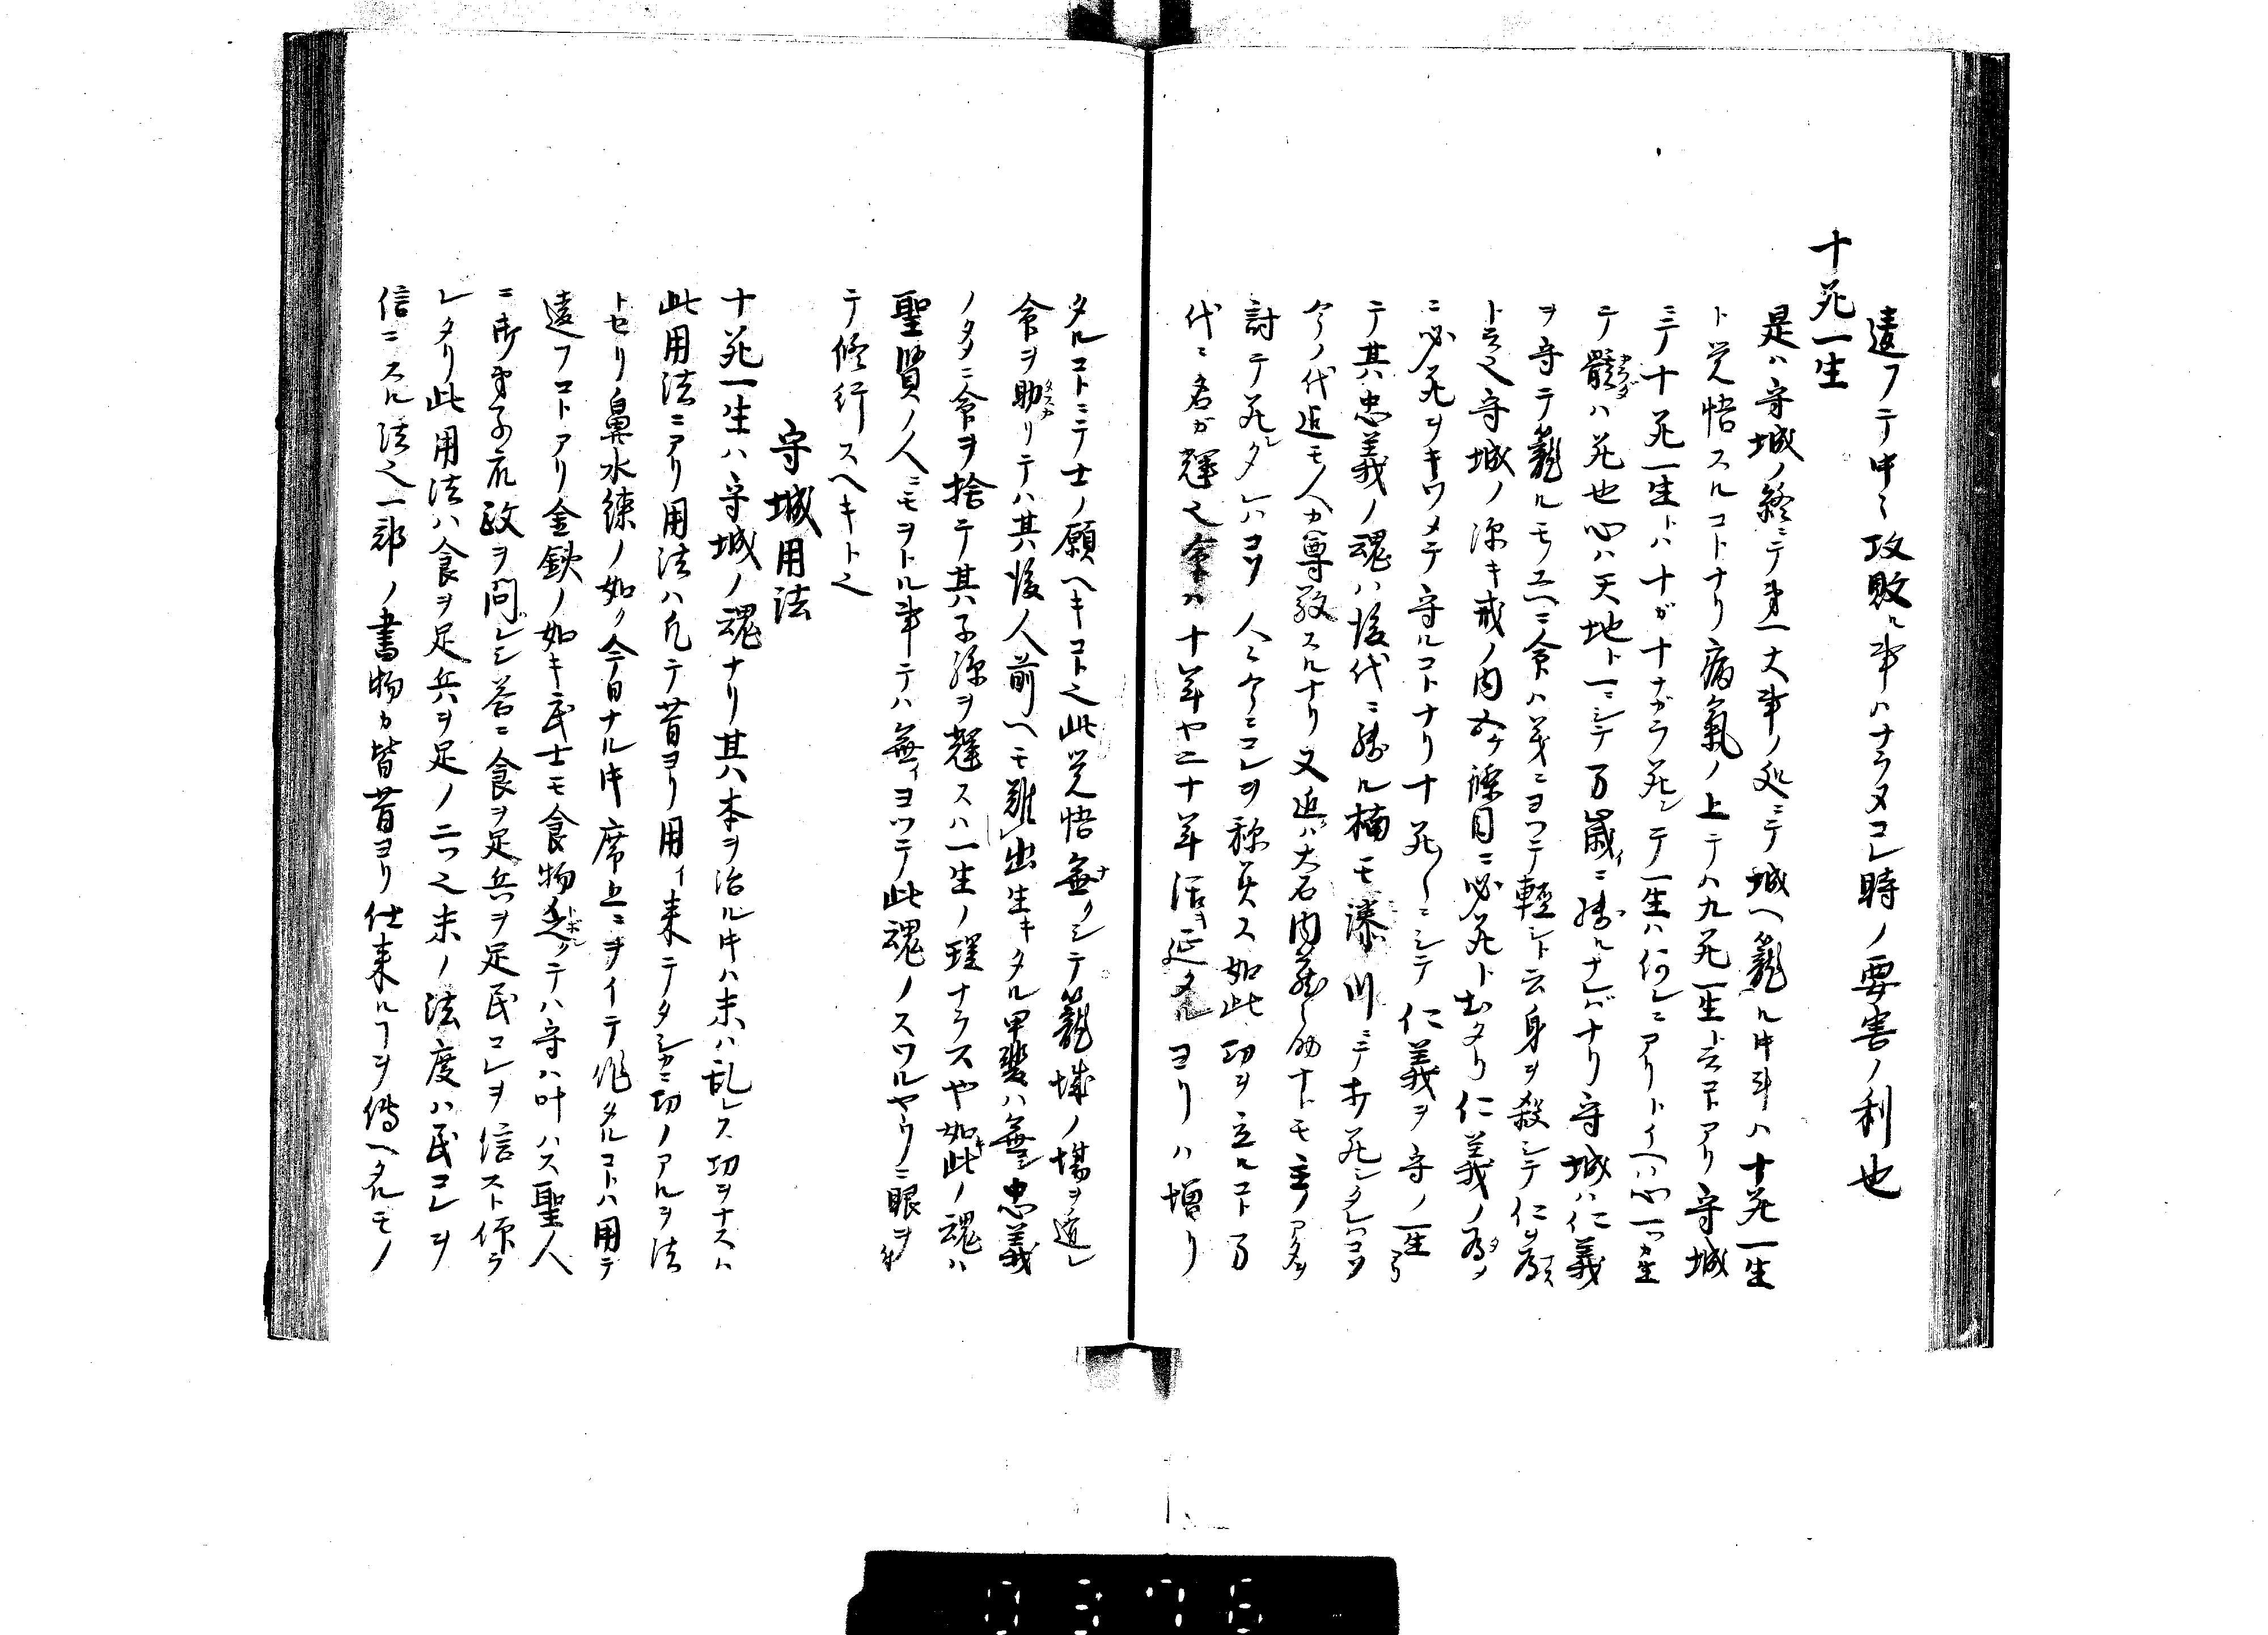 違フテ中々攻敗ル事ハナラヌコレ時ノ要害ノ利也
十死一生
是ハ守城ノ終ニテ第一大事ノ処ニテ城ヘ籠ル時斗ハ十死一生
ト覚悟スルコトナリ病氣ノ上テハ九死一生ト云コトアリ守城
ニテ十死一生トハ十ガ十ナガラ死シテ一生ハ何レニアリトイヘハ心一ツカ生
テ骸ハ死也心ハ天地ト一ニシテ万歳ニ残ルナレバナリ守城ハ仁義
ヲ守テ籠ルモノユヘニ命ハ義ニヨツテ輕シト云身ヲ殺シテ仁ヲ為ス
ト云之守城ノ深キ戒ノ内五ケ條目ニ必死ト出タリ仁義ノ為メ
ニ必死ヲキワメテ守ルコトナリ十死々ニシテ仁義ヲ守ノ一生ヨリ
テ其忠義ノ魂ハ後代ニ残ル楠モ湊川ニテ打死シタレハコソ
今ノ代迄モ人カ尊敬スルナリ又近ハ大石内蔵助ナトモ主ノアタヲ
討テ死シタレハコソ人々今ニコレヲ称美ス如此功ヲ立ルコト万
代ニ名ガ輝之命ハ十年ヤ二十年活延タルヨリハ増リ
タルコトニテ士ノ願ヘキコト之此覚悟無クシテ籠城ノ場ヲ遁レ
命ヲ助リテハ其後人前ヘモ難出生キタル甲斐ハ無シ忠義
ノタメニ命ヲ捨テ其子孫ヲ輝スハ一生ノ理ナラスヤ如此ノ魂ハ
聖賢ノ人ニモヲトル事テハ無イヨツテ此魂ノスワルヤウニ眼ヲ付
テ修行スヘキト之
守城用法
十死一生ハ守城ノ魂ナリ其本ヲ治ル時ハ末ハ乱レス功ヲナスハ
此用法ニアリ用法ハ凡テ昔ヨリ用イ来テタシカニ功ノアルヲ法
トセリ鼻水練ノ如ク今日ナル時席上ニヲイテ作タルコトハ用テ
違フコトアリ金鉄ノ如キ武士モ食物乏クテハ守ハ叶ハス聖人
ニ御弟子衆政ヲ問レシ答ニ食ヲ足兵ヲ足民コレヲ信スト仰ラ
レタリ此用法ハ食ヲ足兵ヲ足ノ二ツ之末ノ法度ハ民コレヲ
信ニスル法之一部ノ書物カ皆昔ヨリ仕来ルコヲ傳ヘタルモノ